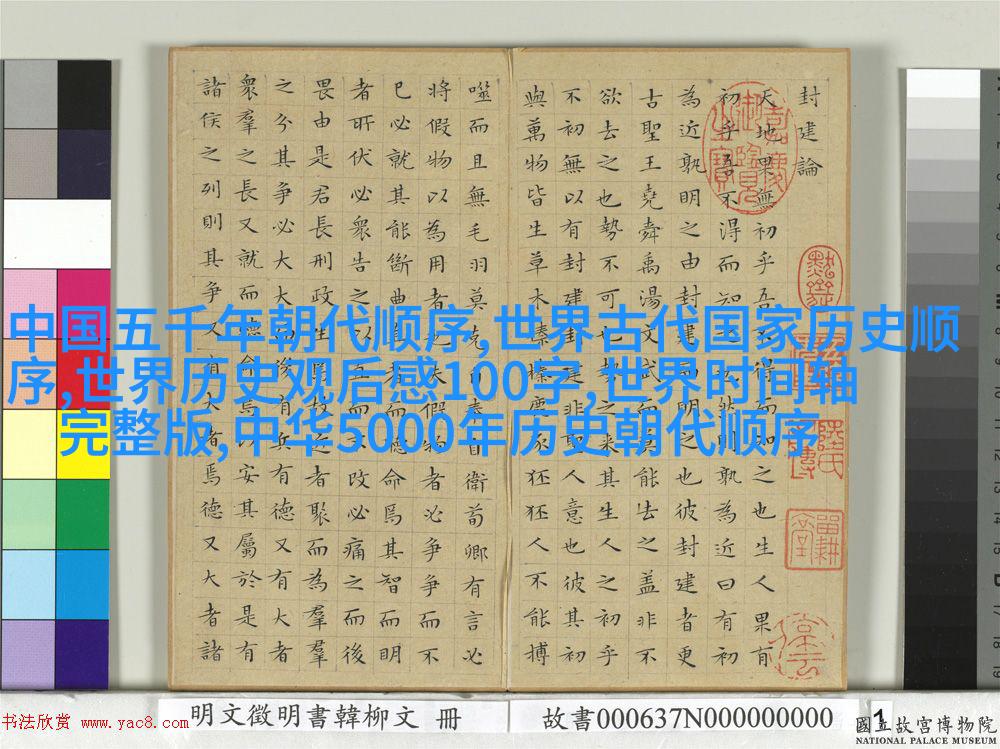 封建論
天地果無初乎吾不得而知之也生人果有
初乎吾不得而知之也然則孰為近曰有初
為近孰明之由封建而明之也彼封建者更
古聖王堯舜禹湯文武而莫能去之蓋非不
欲去之也勢不可也勢之來其生人之初乎
不初無以有封建封建非聖人意也彼其初
與萬物皆生草木榛榛鹿豕狉狉人不能搏
噬而且無毛羽莫克自奉自衛荀卿有言必
將假物以為用者也夫假物者必爭爭而不
已必就其能斷曲直者而聽命焉其智而明
者所伏必眾告之以直而不改必痛之而後
畏由是君長刑政生焉故近者聚而為羣
之分其爭必大大而後有兵有德又有大者
衆羣之長又就而聽命焉以安其屬於是有
諸侯之列則其爭又有大者焉德又大者諸
中国五千年朝代顺序,世界古代国家历史顺
序,世界历史观后感100字,世界时间轴
完整版,中华5000年历史朝代顺序
书法欣赏 www.yac8.com
明文徵明書韓柳文 冊
故書000637N000000000
1
國立故宮博物院
NATIONAL PALACE MUSEUM